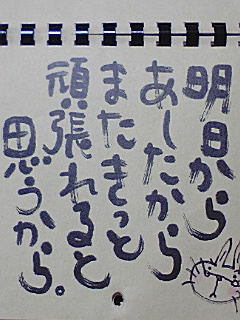 明日から
あしたから
またきっと
頑張れると
思うから。